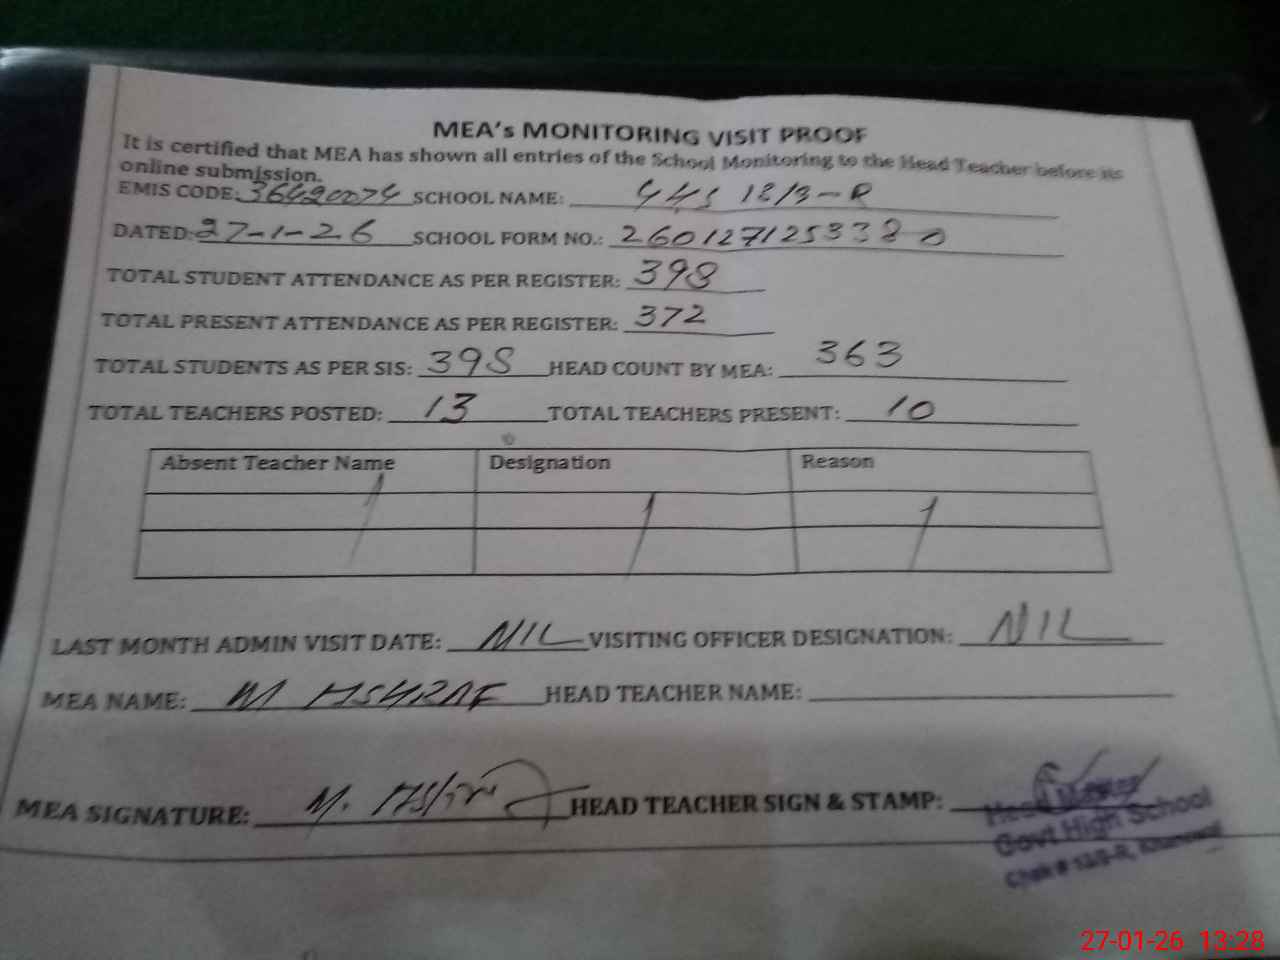 MEA's MONITORING VISIT PROOF
It is certified that MEA has shown all entries of the School Monitoring to the Head Teacher before its
online submission.
EMIS CODE: 36420074 SCHOOL NAME: GHS 12/3-R
DATED: 27-1-26 SCHOOL FORM NO.: 2601271253380
TOTAL STUDENT ATTENDANCE AS PER REGISTER: 398
TOTAL PRESENT ATTENDANCE AS PER REGISTER: 372
TOTAL STUDENTS AS PER SIS: 398 HEAD COUNT BY MEA: 363
TOTAL TEACHERS POSTED: 13 TOTAL TEACHERS PRESENT: 10
Absent Teacher Name Designation Reason
LAST MONTH ADMIN VISIT DATE: NIL VISITING OFFICER DESIGNATION: NIL
MEA NAME: M ASHRAF HEAD TEACHER NAME:
MEA SIGNATURE: M. HEAD TEACHER SIGN & STAMP:
Head Master
Govt High School
Chak #
27-01-26 13:28